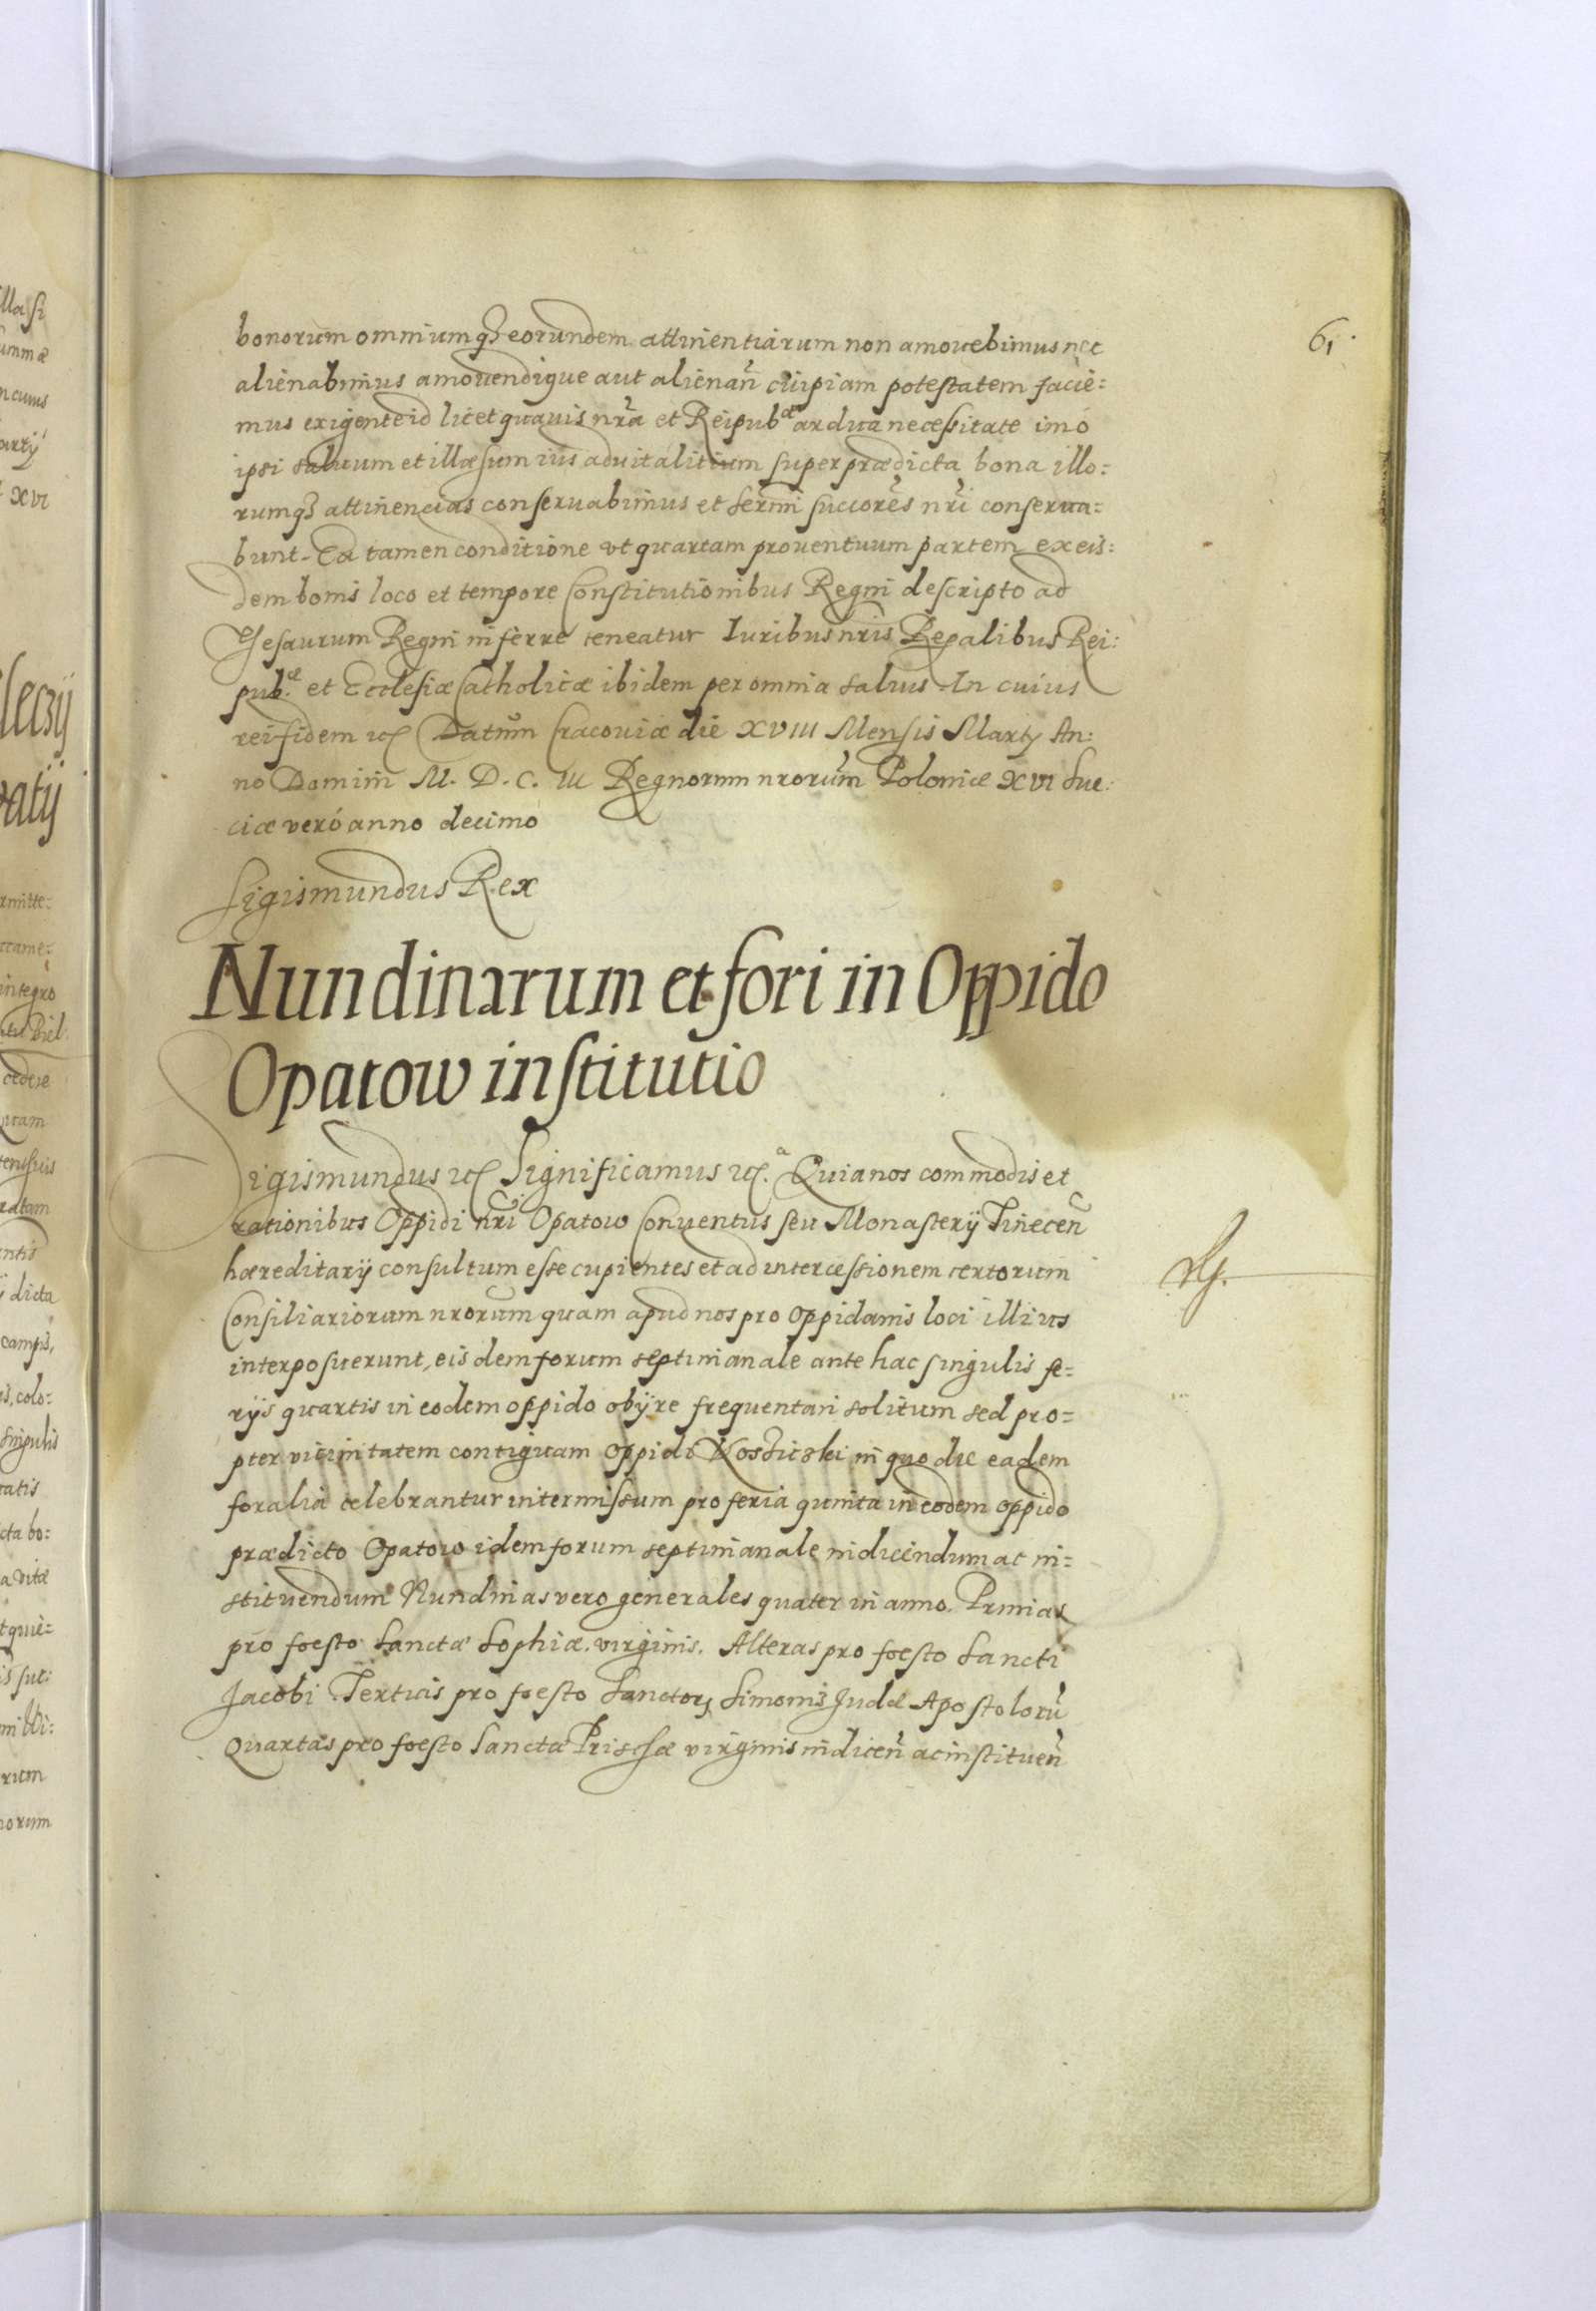 61.
bonorum omniumq₃ eorundem attinentiarum non amouebimus nec
alienabimus amouendique aut alienañ cuipiam potestatem facie=
mus exigente id licet quauis nr̃a et Reipubᵃᵉ ardua necessitate imò
ipsi saluum et illæsum ius aduitalitium super prædicta bona illo=
rumq₃ attinencias conseruabimus et serm̃i succores̃ nr̃i conserua=
bunt. Ea tamen conditione vt quartam prouentuum partem ex eis=
dem bonis loco et tempore Constitutionibus Regni descripto ad
Thesaurum Regni inferre teneatur Iuribus nr̃is Regalibus Rei:
pub.ᵃᵉ et Ecclesiæ Catholicæ ibidem per omnia saluis. In cuius
rei fidem etc Datum Cracouiæ die XVIII Mensis Martij An:
no Domini M. D. C. III Regnorum nrorum̃ Poloniæ XVI Sue:
ciæ veró anno decimo
Sigismundus Rex
Nundinarum et fori in Oppido
Opatow institutio
Sigismundus etc Significamus etc.ᵃ Quia nos commodis et
rationibus Oppidi nr̃i Opatow Conuentus seu Monasterij Tinecen̄
hæreditarij consultum esse cupientes et ad intercessionem certorum
Consiliariorum nrorum̃ quam apud nos pro oppidanis loci illius
interposuerunt, eisdem forum septimanale ante hac singulis fe=
rijs quartis in eodem oppido obijre frequentari solitum sed pro=
pter vicinitatem contiguam oppidi Kosticzki in quo die eadem
foralia celebrantur intermissum pro feria quinta in eodem oppido
prædicto Opatow idem forum septimanale indicendum ac in=
stituendum Nundinas vero generales quater in anno. Primias
pro foesto Sanctæ Sophiæ. virginis. Alteras pro foesto Sancti
Jacobi Tertias pro foesto Sanctorꝝ Simonis Judæ Apostolorũ
Quartas pro foesto Sanctæ Priscæ virginis indiceñ ac instituen̄